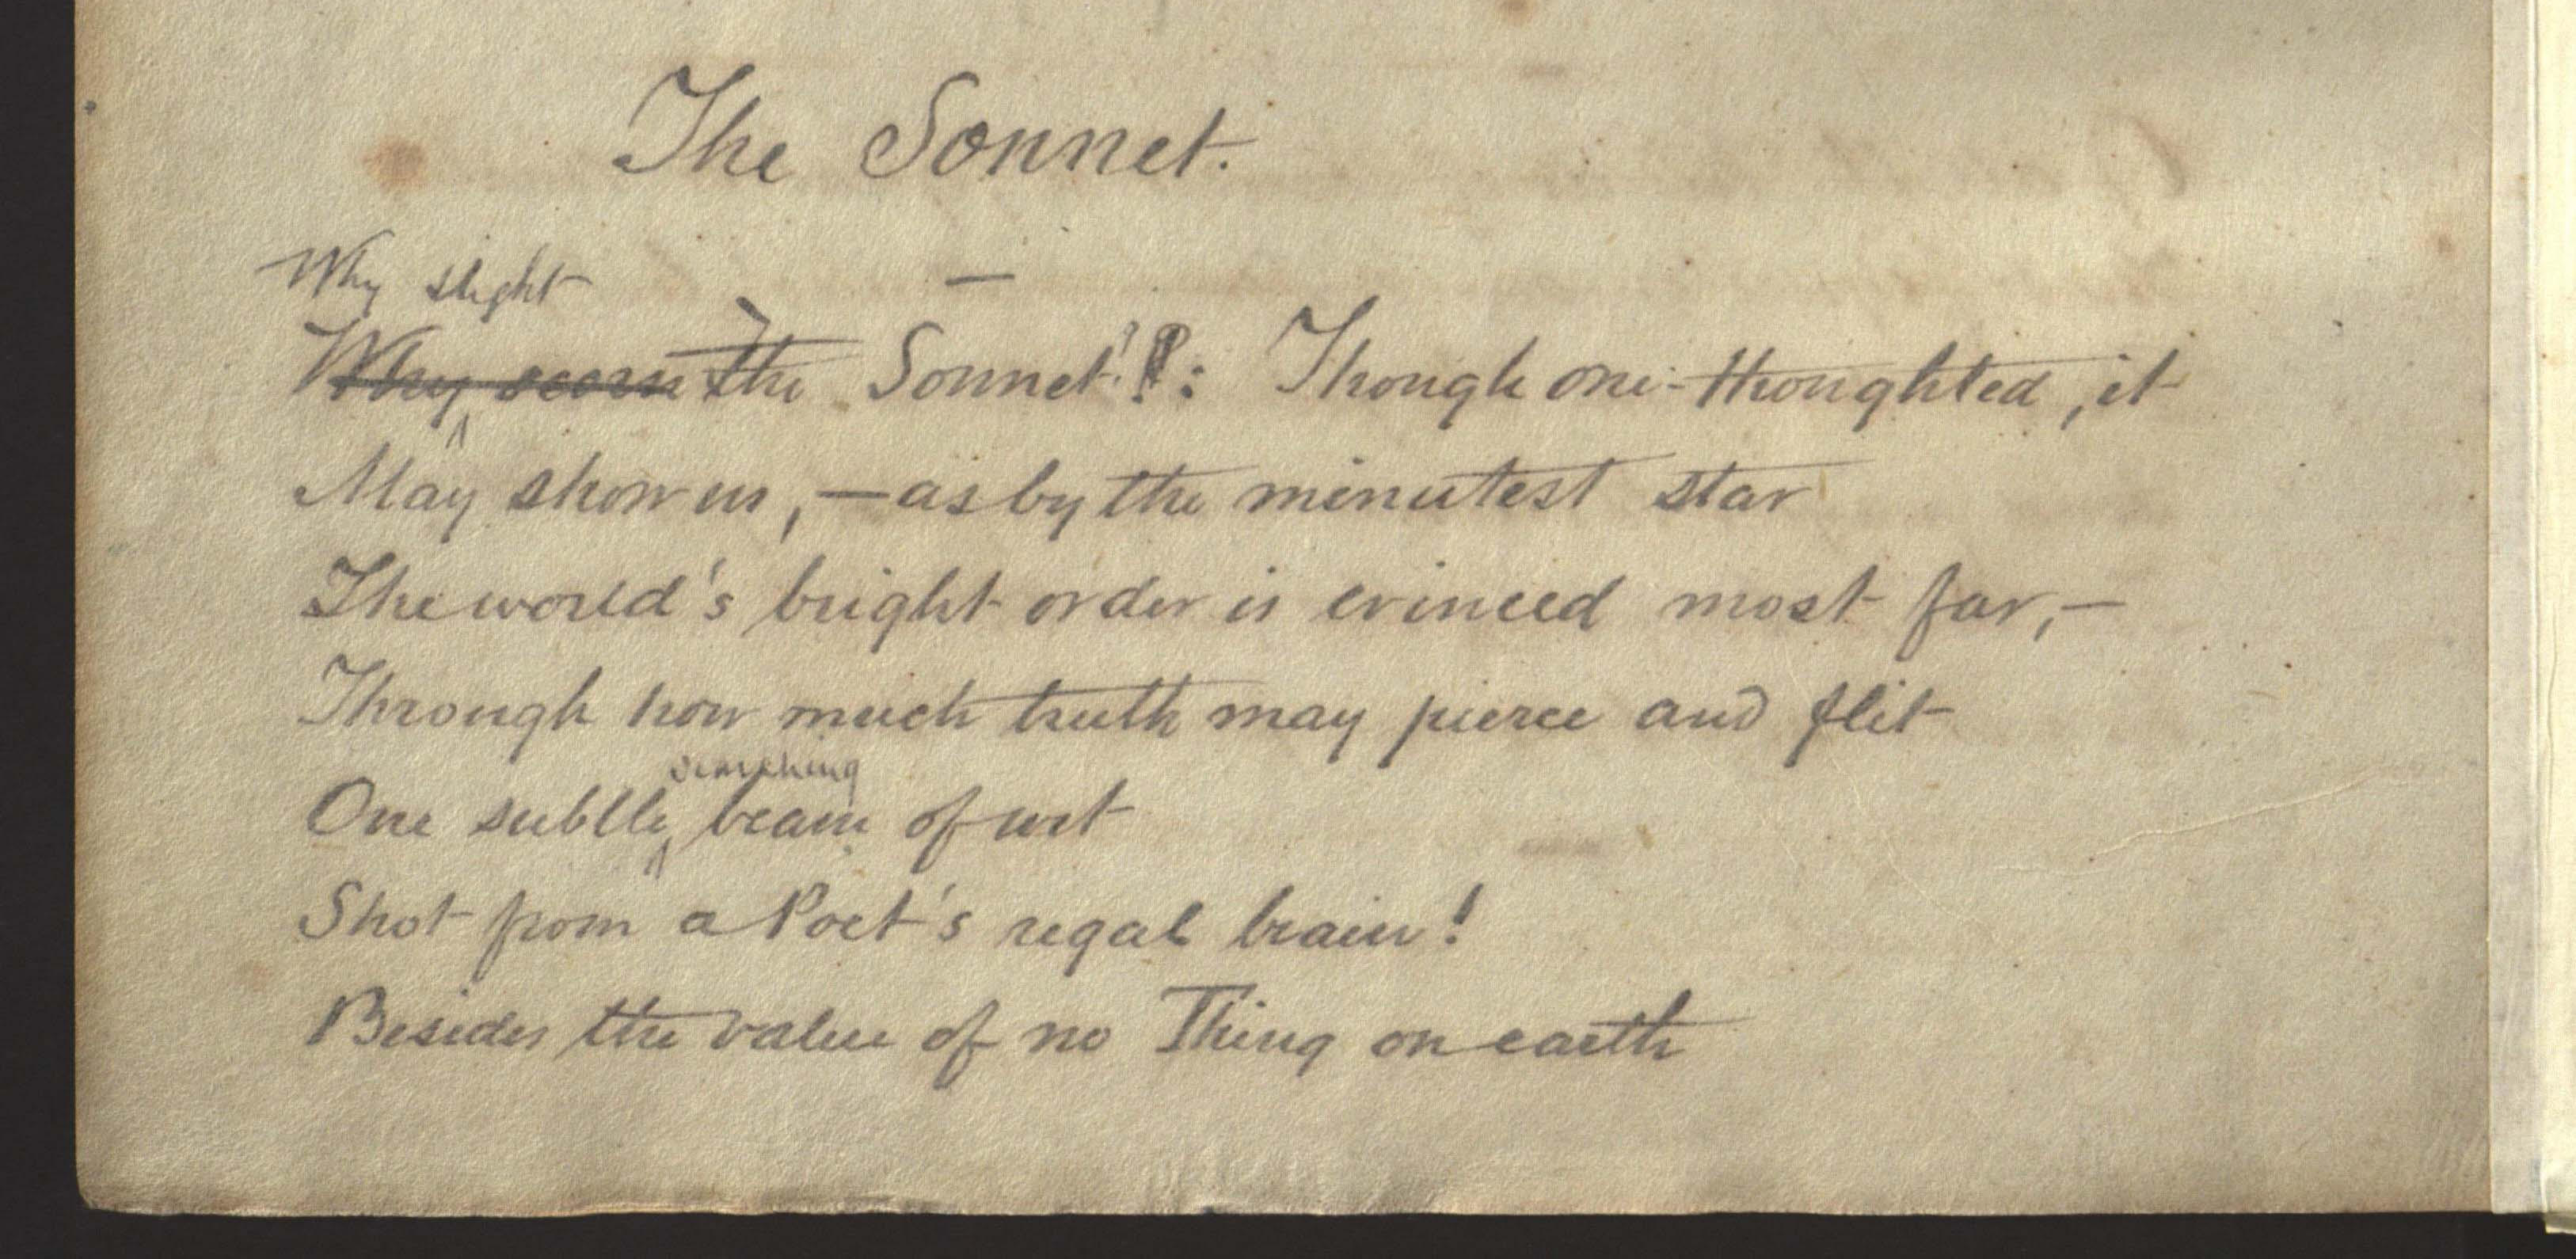 The Sonnet.
Why slight
Why scorn the Sonnet?!: Though one-thoughted, it
May show us,—as by the minutest star
The world's bright order is evinced most far,—
Through how much truth may pierce and flit
searching
One subtlly beam of wit
Shot from a Poet's regal brain!
Besides the value of no Thing on earth